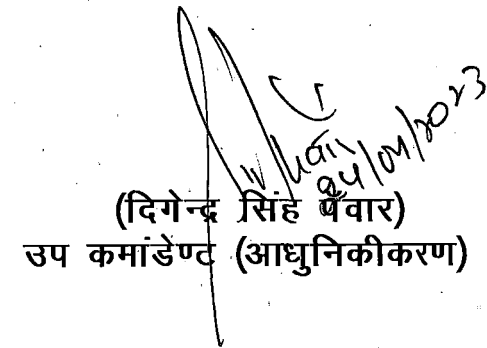 24/04/2023
(दिगेन्द्र सिंह पँवार)
उप कमांडेण्ट (आधुनिकीकरण)